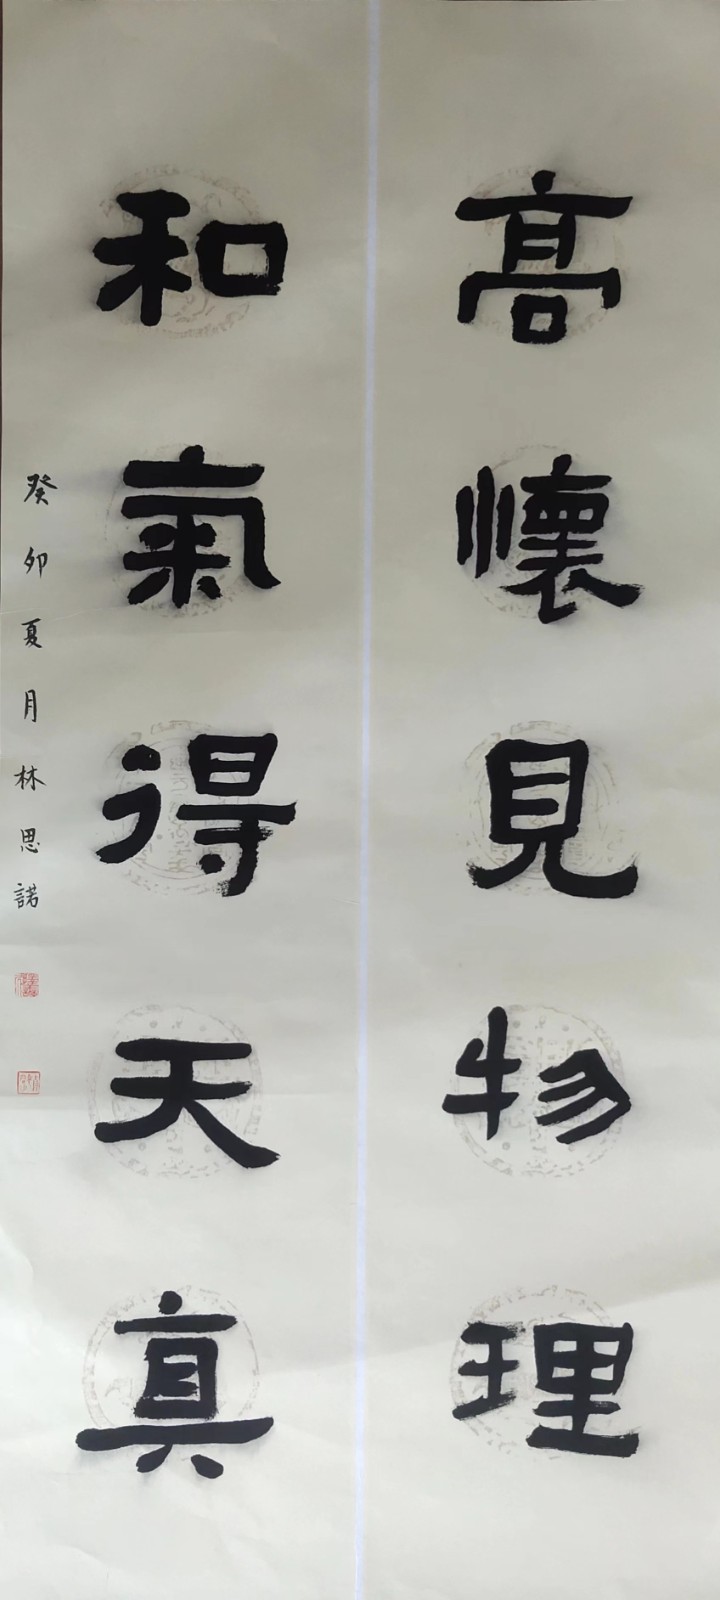 高懷見物理
和氣得天真
癸卯夏月林思諾